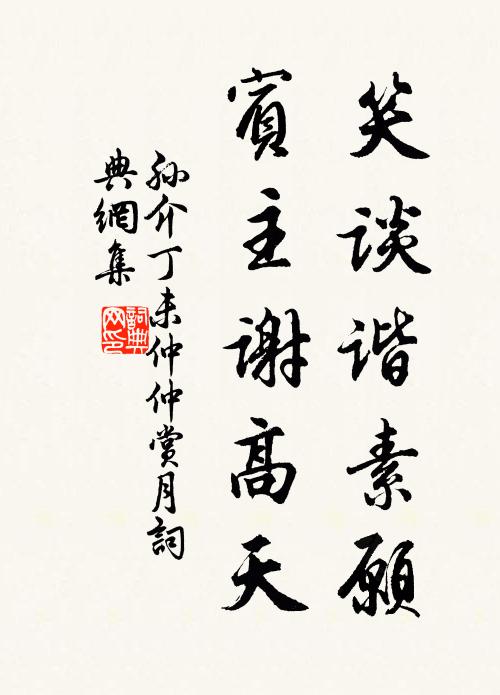 笑谈谐素愿
賓主谢高天
孙介丁未仲仲赏月詞
典網集
詞典网印